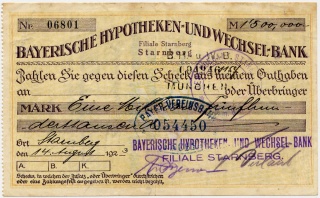 Nr. 06801 M 1500,000.-
BAYERISCHE HYPOTHEKEN-UND WECHSEL-BANK
Filiale Starnberg
Starnberg
Zahlen Sie gegen diesen Scheck aus meinem Guthaben
an
MÜNCHEN
oder Überbringer
MARK Eine
BAYER. VEREINSBANK
derttausend
054450
Ort Starnberg
BAYERISCHE HYPOTHEKEN UND WECHSEL-BANK
den 14. August 1923
FILIALE STARNBERG.
A. B. K.
Schecks, in welchen der Zusatz „oder Überbringer" durchstrichen oder
eine Zahlungsfrist angegeben ist, werden nicht bezahlt.